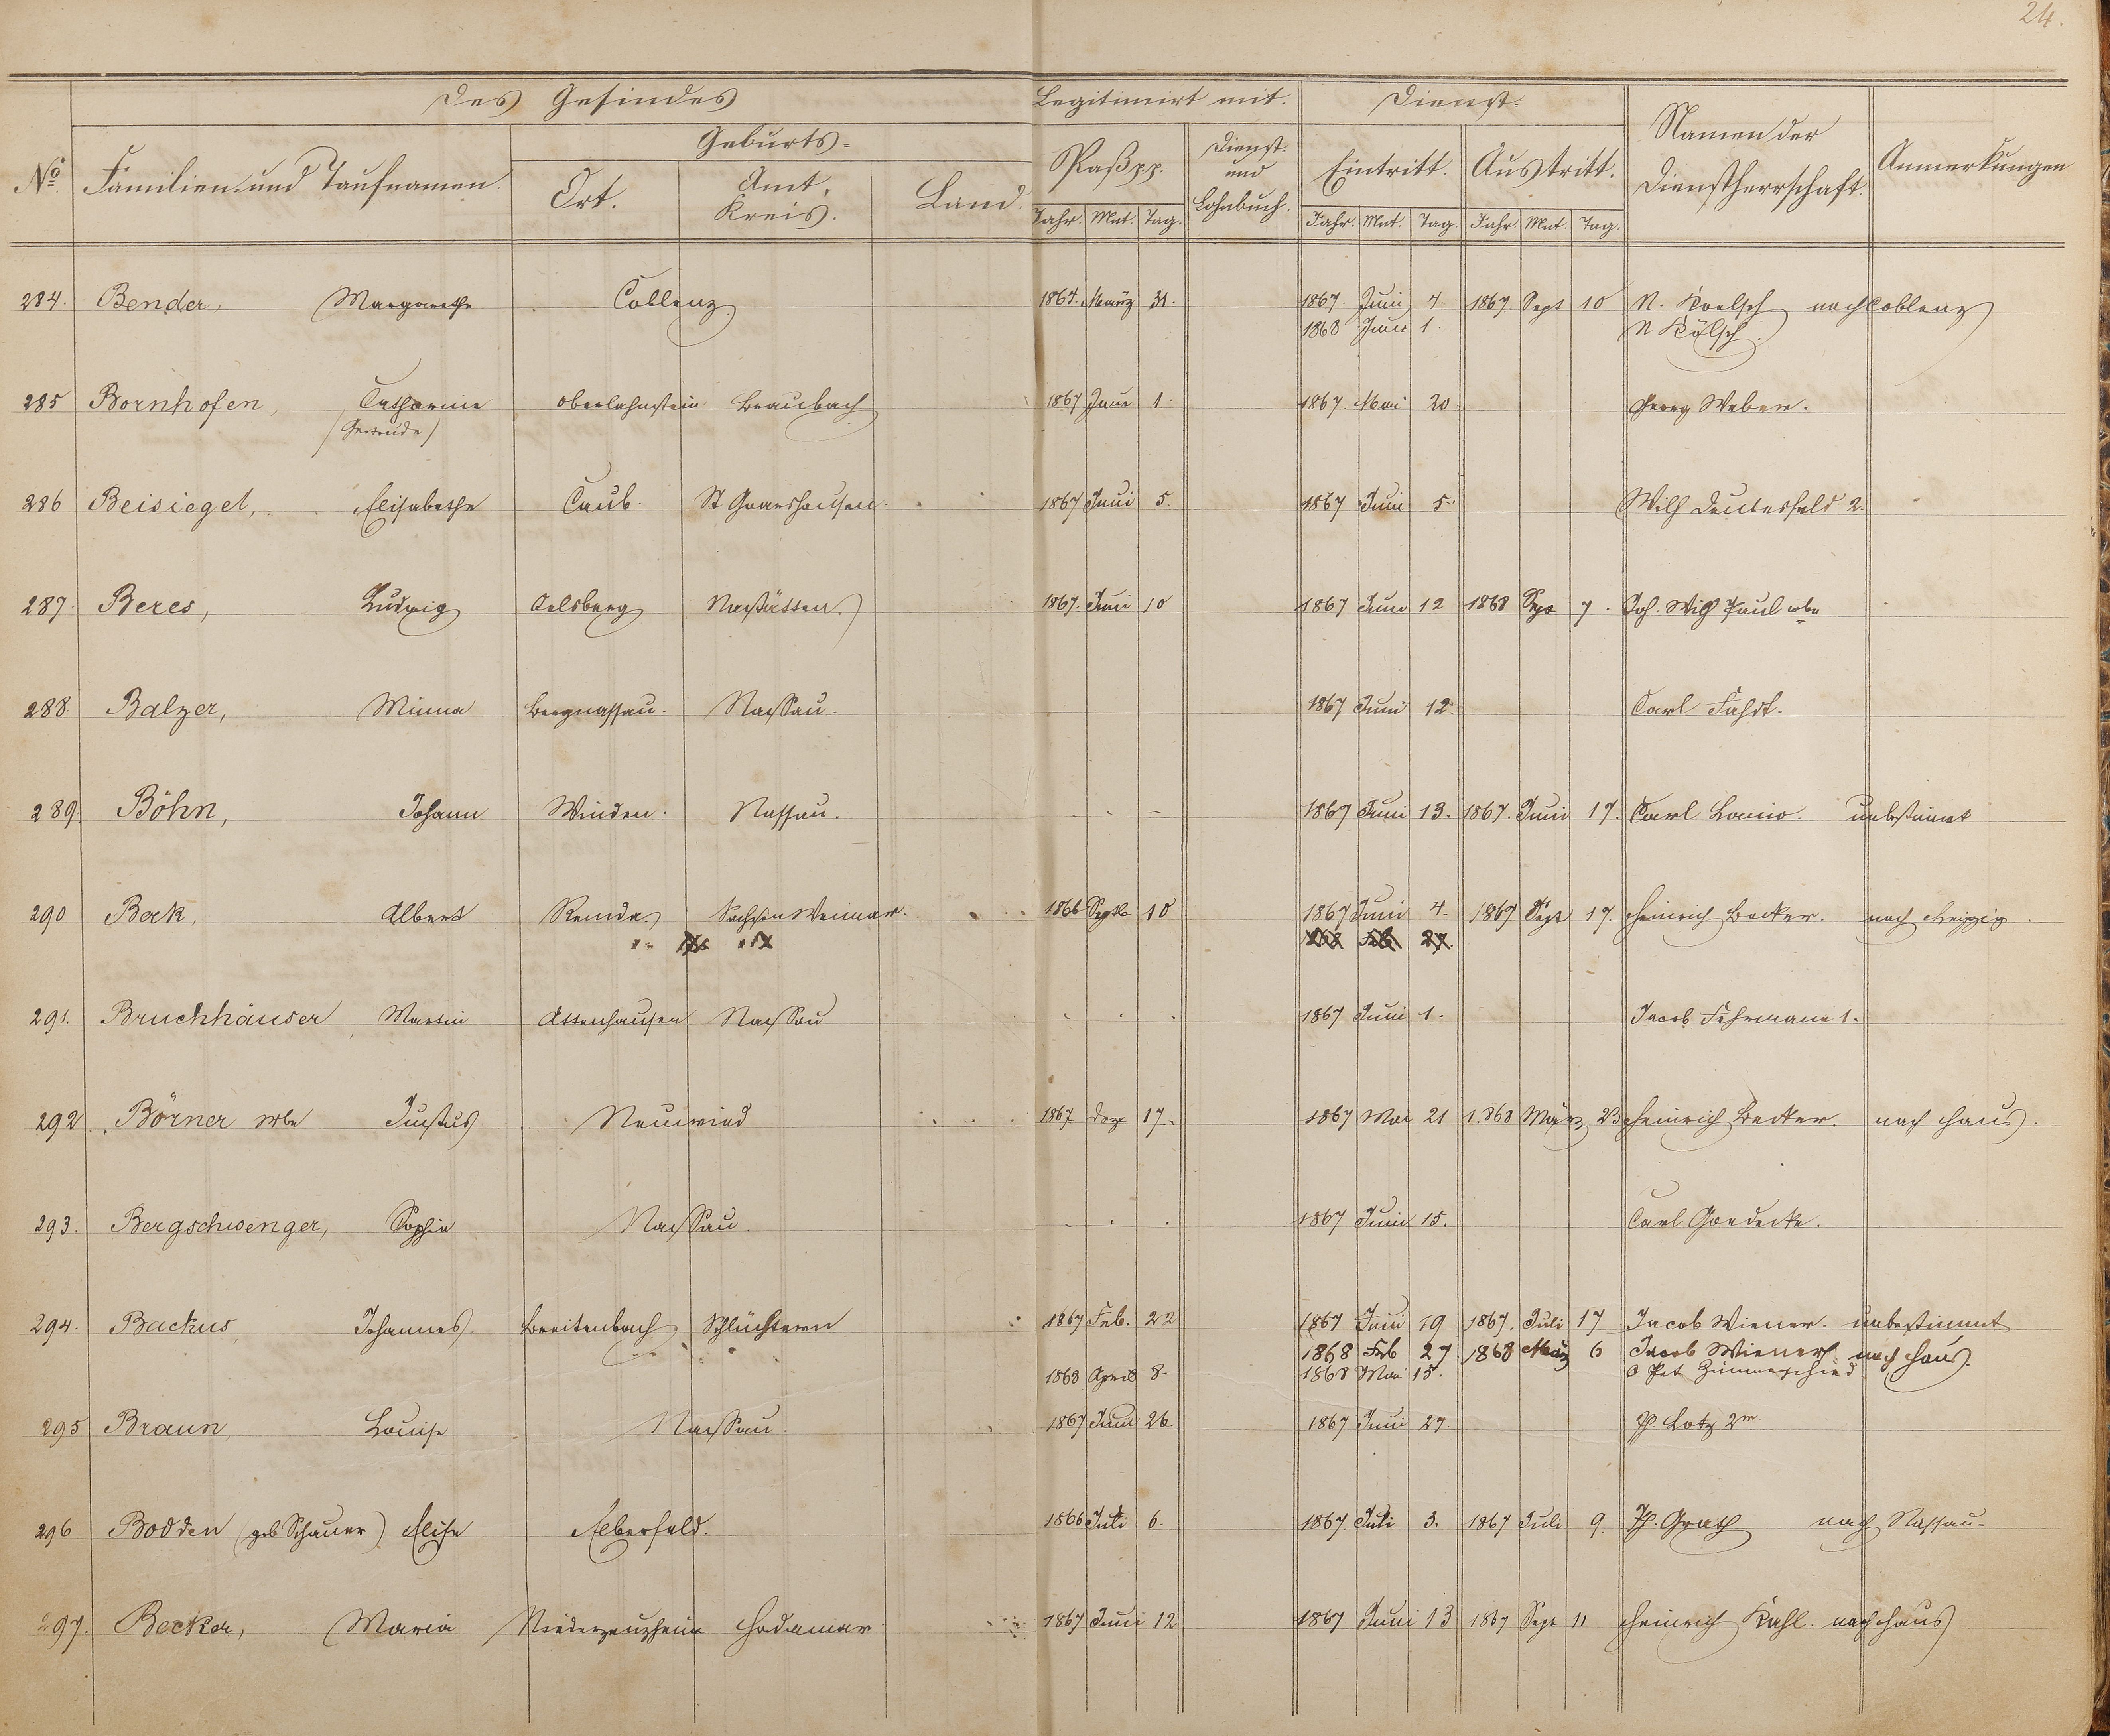 24.
Des Gesindes
Legitimirt mit.
Dienst.
Geburts-
No.
Familien- und Taufnamen.
Ort.
Amt, Kreis.
Land.
Paß pp.
Dienst- und Lohnbuch.
Eintritt.
Austritt.
Namen der Dienstherrschaft.
Anmerkungen
Jahr. Mnt. Tag.
Jahr. Mnt. Tag.
Jahr. Mnt. Tag.
284. Bender, Margarethe Coblenz 1864. März 31. 1867. Juni 4. 1867. Sept 10 N. Koelsch nach Coblenz
1868 Juni 1. N Kölsch.
285 Bornhofen, Catharine Oberlahnstein Braubach 1867 Juni 1. 1867. Mai 20. Georg Weber.
(Gertrude)
286 Beisiegel, Elisabethe Caub. St Goarshausen. 1867 Juni 5. 1867 Juni 5. Wilh 2.
287. Beres, Ludwig Oelsberg Nastätten. 1867. Juni 10 1867 Juni 12 1868 Sept 7. Joh. Wilh Paul
288. Balzer, Minna Bergnassau. Nassau. 1867 Juni 12. Carl
289. Böhn, Johann Winden. Nassau. 1867 Juni 13. 1867. Juni 17. Carl unbestimmt
290 Bock, Albert Remda. Sachsen Weimar. 1866 Septbr 18 1867 Juni 4. 1867 Sept 17. Heinrich Becker. nach Leipzig
1868 Feb 27.
291. Bruchhäuser, Martin Attenhausen Nassau 1867 Juni 1. Jacob Fehrmann 1.
292 Börner Justus Neuwied 1867 Dez 17. 1867 Mai 21 1868 März 23 Heinrich Becker. nach Haus.
293. Bergschwenger, Sophie Nassau. 1867 Juni 15. Carl Goedecke.
294. Backus, Johannes. Breitenbach Schlüchtern 1867 Feb. 22 1867 Juni 19 1867. Juli 17 Jacob Wiener. unbestimmt
1868 Feb 27 1868 März 6 Jacob Wiener nach Haus.
1868 April 8. 1868 Mai 15. Pet Zimmerschied
295 Braun, Louise Nassau. 1867 Juni 26 1867 Juni 27. Ph. Lotz 2r
296 Bodden (geb Schauer) Elise Elberfeld. 1866 Juli 6. 1867. Juli 3. 1867 Juli 9. Ph. nach Nassau.
297. Becker, Maria Niederzeuzheim Hadamar 1867 Juni 12 1867 Juni 13 1867 Sept 11 Heinrich Kahl. nach Haus